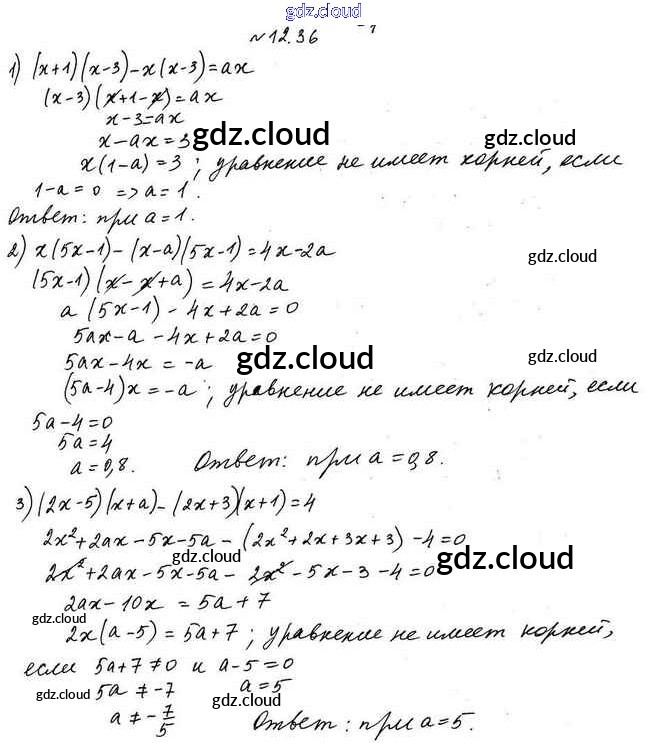 gdz.cloud
№12.36
1) (x+1)(x-3)-x(x-3)=ax
(x-3)(x+1-x)=ax
x-3=ax
x-ax=3 gdz.cloud gdz.cloud
x(1-a)=3; уравнение не имеет корней, если
1-a=0 => a=1.
Ответ: при a=1.
2) x(5x-1)-(x-a)(5x-1)=4x-2a
gdz.cloud
(5x-1)(x-x+a)=4x-2a
a(5x-1)-4x+2a=0
5ax-a-4x+2a=0
5ax-4x=-a gdz.cloud gdz.cloud
(5a-4)x=-a; уравнение не имеет корней, если
5a-4=0
5a=4
a=0,8. Ответ: при a=0,8.
3) (2x-5)(x+a)-(2x+3)(x+1)=4
2x²+2ax-5x-5a-(2x²+2x+3x+3)-4=0
gdz.cloud gdz.cloud
2x²+2ax-5x-5a-2x²-5x-3-4=0
2ax-10x=5a+7
gdz.cloud
2x(a-5)=5a+7; уравнение не имеет корней,
если 5a+7≠0 и a-5=0
gdz.cloud 5a≠-7 a=5 gdz.cloud gdz.cloud
a≠-7/5 Ответ: при a=5.